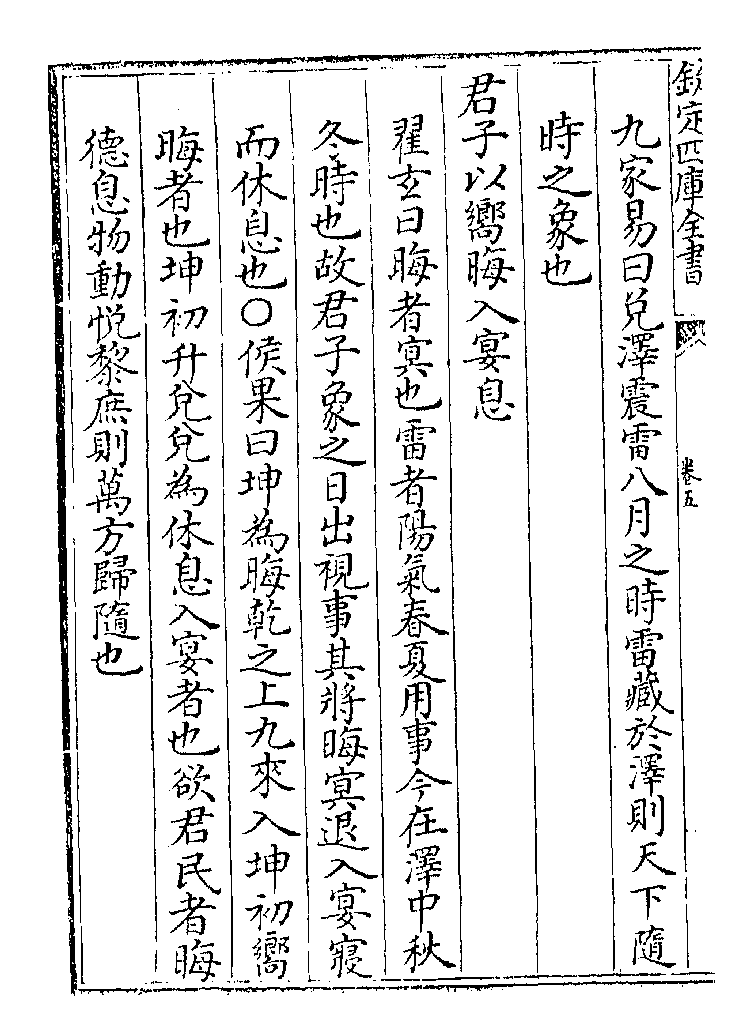 欽定四庫全書
卷五
九家易曰兌澤震雷八月之時雷藏於澤則天下隨
時之象也
君子以嚮晦入宴息
翟玄曰晦者冥也雷者陽氣春夏用事今在澤中秋
冬時也故君子象之日出視事其將晦冥退入宴寢
而休息也○侯果曰坤為晦乾之上九來入坤初嚮
晦者也坤初升兌兌為休息入宴者也欲君民者晦
德息物動悦黎庶則萬方歸隨也